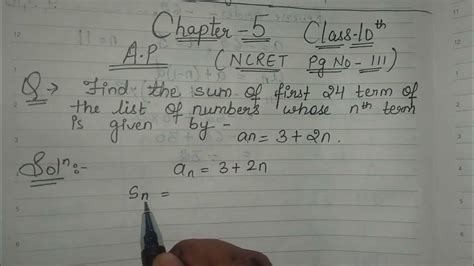 Chapter-5 Class-10th
A.P (NCRET Pg No - 111)
Q → Find the sum of first 24 term of
the list of numbers whose nth term
is given by -
an = 3 + 2n.
Soln:- an = 3 + 2n
Sn =